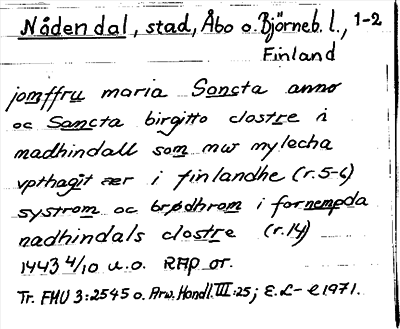 Nåden dal, stad, Åbo o. Björneb. l., 1-2
Finland
jomffru maria Sancta anno
oc Sancta birgitto clostre i
nadhindall som nw nylecha
vpthagit ær i finlandhe (r.5-6)
systrom oc brødhrom i fornempda
nadhindals clostre (r.14)
1443 4/10 u.o. RAp or.
Tr. FMU 3:2545 o. Arw. Handl. III:25; E.L-l 1971.